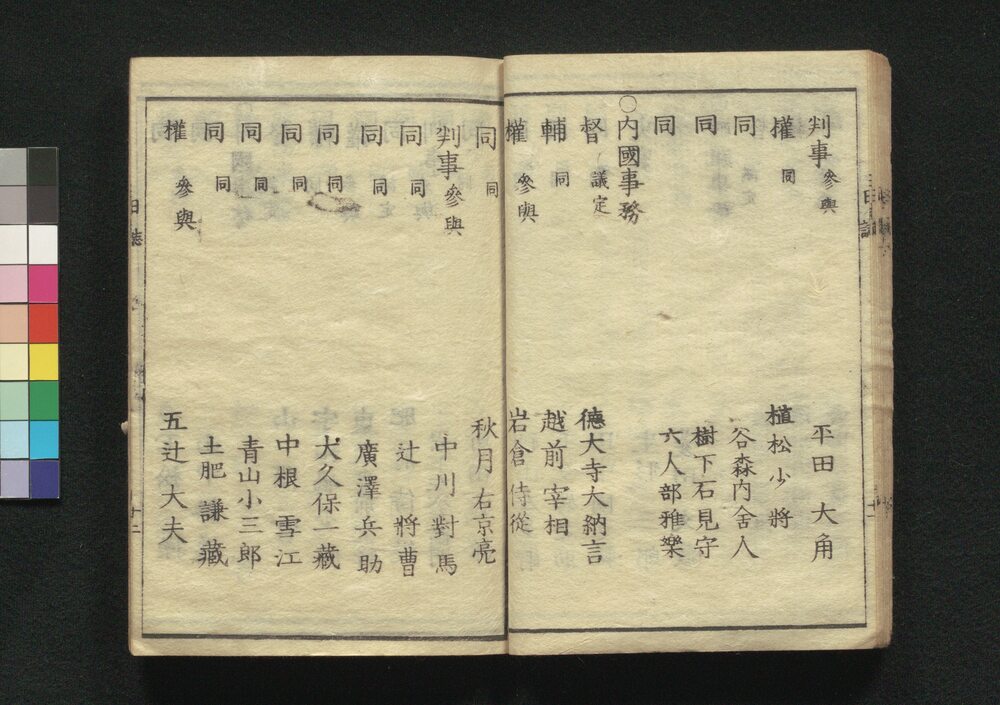 判事 參與 平田大角
權 同 植松少將
同 谷森内舍人
同 樹下石見守
同 六人部雅樂
○内國事務
督 議定 德大寺大納言
輔 同 越前宰相
權 參與 岩倉侍從
同 同 秋月右京亮
判事 參與 中川對馬
同 同 辻將曹
同 同 廣澤兵助
同 同 大久保一藏
同 同 中根雪江
同 同 青山小三郎
同 同 土肥謙藏
權 參與 五辻大夫
日誌
十二